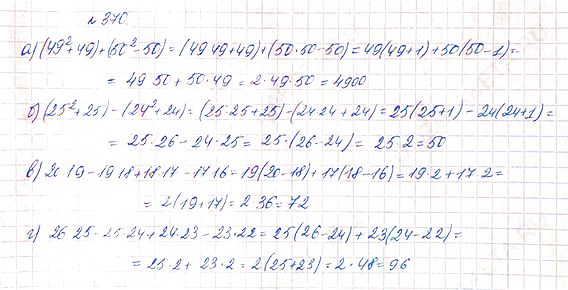 № 370
а) (49²+49)+(50²-50)=(49·49+49)+(50·50-50)=49(49+1)+50(50-1)=
= 49·50+50·49=2·49·50=4900
б) (25²+25)-(24²+24)=(25·25+25)-(24·24+24)=25(25+1)-24(24+1)=
= 25·26-24·25=25·(26-24)=25·2=50
в) 20·19-19·18+18·17-17·16=19(20-18)+17(18-16)=19·2+17·2=
= 2(19+17)=2·36=72
г) 26·25-25·24+24·23-23·22=25(26-24)+23(24-22)=
= 25·2+23·2=2(25+23)=2·48=96